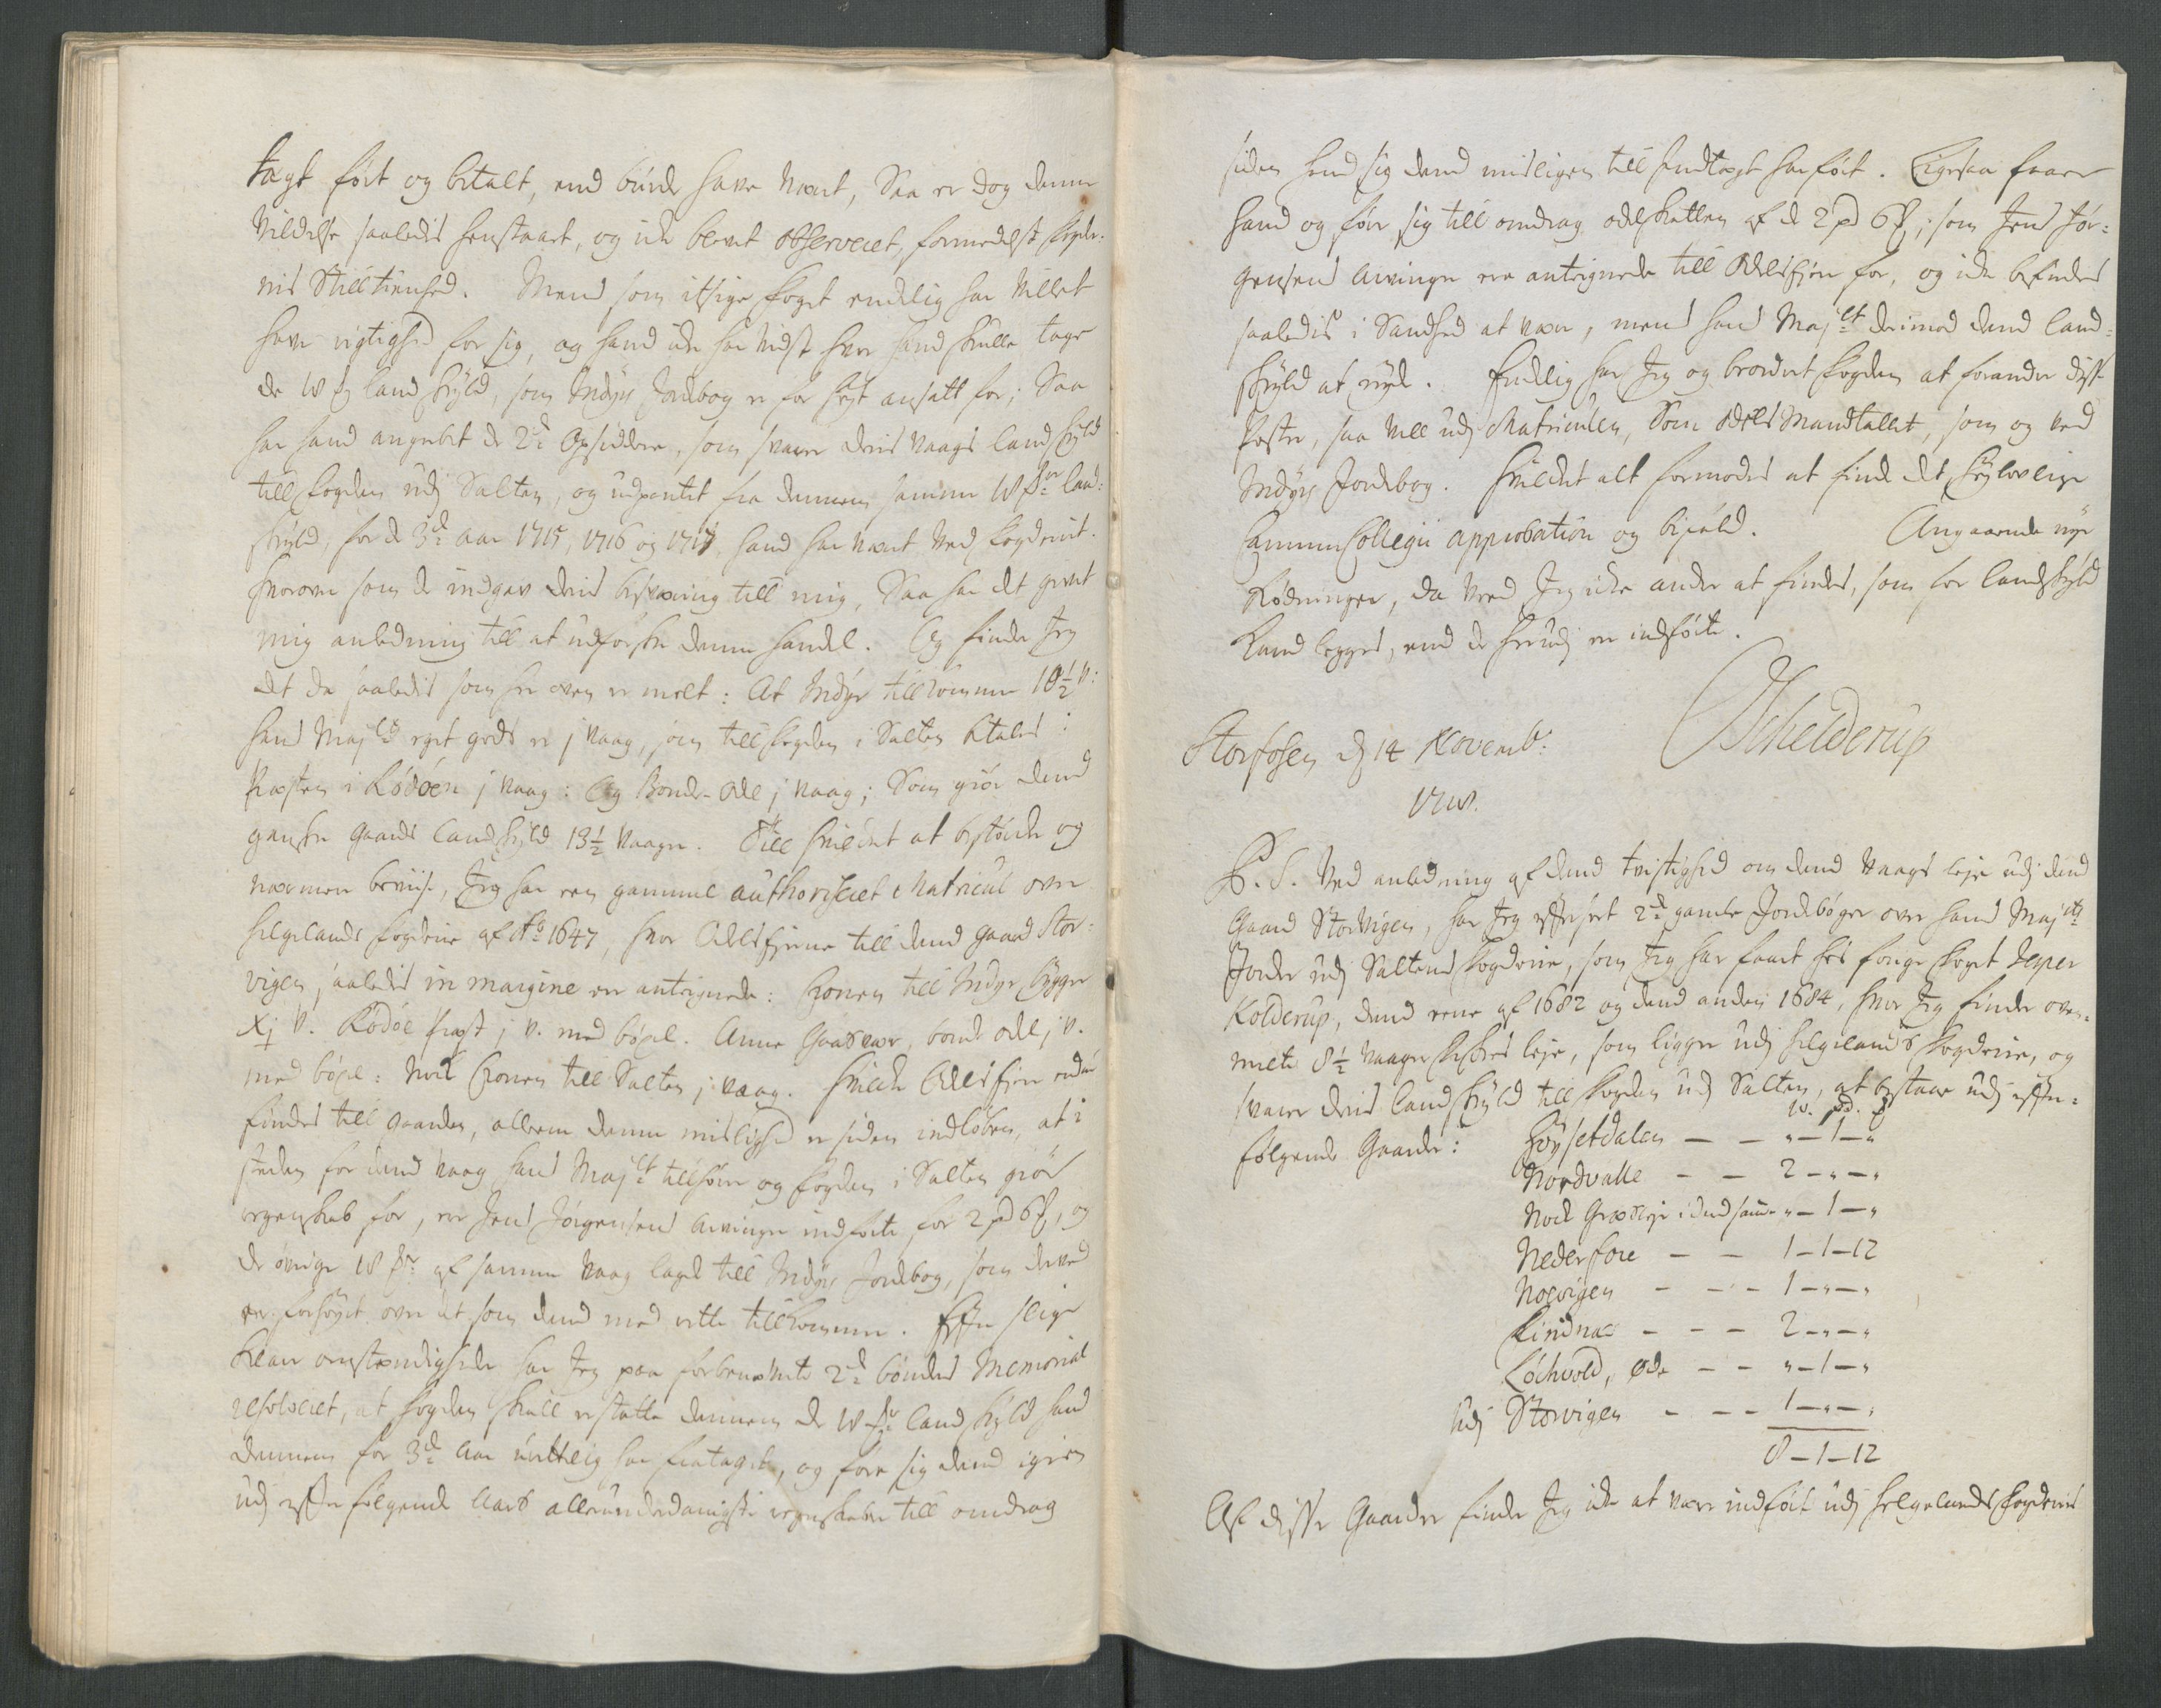 tægt ført og betalt, end burde have været, Saa er dog denne
Vildelse saaledis henstaaet, og icke blevet observeret, formedelst fogder-
nis Stilltienhed. Mend som itzige foget endelig har villet
have rigtighed for sig, og hand icke har vidst hvor hand skulle tage
de 18 landskyld, som Indyr Jordebog er for høyt ansatt for; Saa
har hand angrebet de 2de Opsiddere, som svarer deris Vaags landskyld
till fogden udj Salten, og udpantet fra dennem samme 18 land-
skyld, for de 3de aar 1715, 1716 og 1717 hand har været ved fogderiet.
hvorover som de indgav deris besværing till mig, Saa har det givet
mig anledning till at udforske denne handel. Og finder Jeg
det da saaledis som her oven er melt: At Indyr tillkommer 10½ V:
hans Mayts eget gods er j Vaag, som till fogden i Salten betales:
Præsten i Rödöen j Vaag: Og Bonde-Odel j Vaag; Som giør dend
gandske Gaards landskyld 13½ Vaager. Till hvilcket at bestørcke og
nærmere beviise, Jeg har een gammel authoriseret Matricul over
Helgelands fogderie af Ao 1647, hvor Odels Eyerne till dend gaard Stor-
vigen, saaledis in margine er antegnede: Cronen till Indyr bygger
Xj V. Rödöe Præst j V. med böxel. Anne Gaasvær, bonde odel j V.
med böxel: Nock Cronen till Salten j Vaag. Hvilcke Odels Eyere endnu
findes till gaarden, alleene denne mislighed er siden indløben, at i
steden for dend Vaag hans Mayt tilhører og fogden i Salten giør
regenskab for, er Jens Jørgensens Arvinger indførte for 2 pd 6, og
de øvrige 18 af samme Vaag lagd till Indyrs Jordebog, som derved
er forhøyet over det som dend med rette tillkommer. Efter slige
klare omstændigheder har Jeg paa forbenævnte 2de bønders Memorial
resolveret, at fogden skall erstatte dennem de 18 landskyld hand
dennem for 3de Aar urettelig har frataget, og føre sig dend igien
udj efterfølgende Aars allerunderdanigste regenskaber till omdrag
siden hand sig dend misligen till Indtægt har ført. Ligesaa faaer
hand og føre sig till omdrag odelskatten af de 2 pd 6, som Jens Jør-
gensens Arvinger ere antegnede till Odels Eyere for, og icke befindes
saaledis i Sandhed at være, mens hans Mayt derimod dend land-
skyld at nyde. Endelig har Jeg og beordret fogden at forandre disse
Poster, saa vell udj Matriculen, Som Odels Mandtallet, som og ved
Indyrs Jordebog. Hvilcket alt formodes at finde det Høylovlige
Cammer Collegii approbation og bifald. Angaaende nye
Rödninger, da veed Jeg icke andre at findes, som for landskyld
kand legges, end de herudj er indførte.
Storfosen d 14 Novemb:
1718.
Schelderup
P. S. Ved anledning af dend tvistighed om dend Vaags leje udj dend
Gaard Storvigen, har Jeg efterseet 2de gamle Jordebøger over hans Mayts
Jorder udj Saltens fogderie, som Jeg har faaet hos forige foget Jesper
Kolderup, dend eene af 1682 og dend anden 1684, hvor Jeg finder oven-
melte 8½ Vaager leje, som ligger udj Helgelands fogderie, og
svarer deris landskyld till fogden udj Salten, at bestaae udj efter-
følgende Gaarde: W. pd.
Høysetdalen — — „ — 1 — „
Nordvalle — — 2 — „ — „
Nock Græsleje i dend samme „ — 1 — „
Nederfore — — 1 — 1 — 12
Norvigen — — — 1 — „ — „
Kindnæs — — — 2 — „ — „
Löchvold, øde — — „ — 1 — „
Udj Storvigen — — — 1 — „ — „
8 — 1 — 12
Af disse Gaarder finder Jeg icke at være indført udj Helgelands fogderies